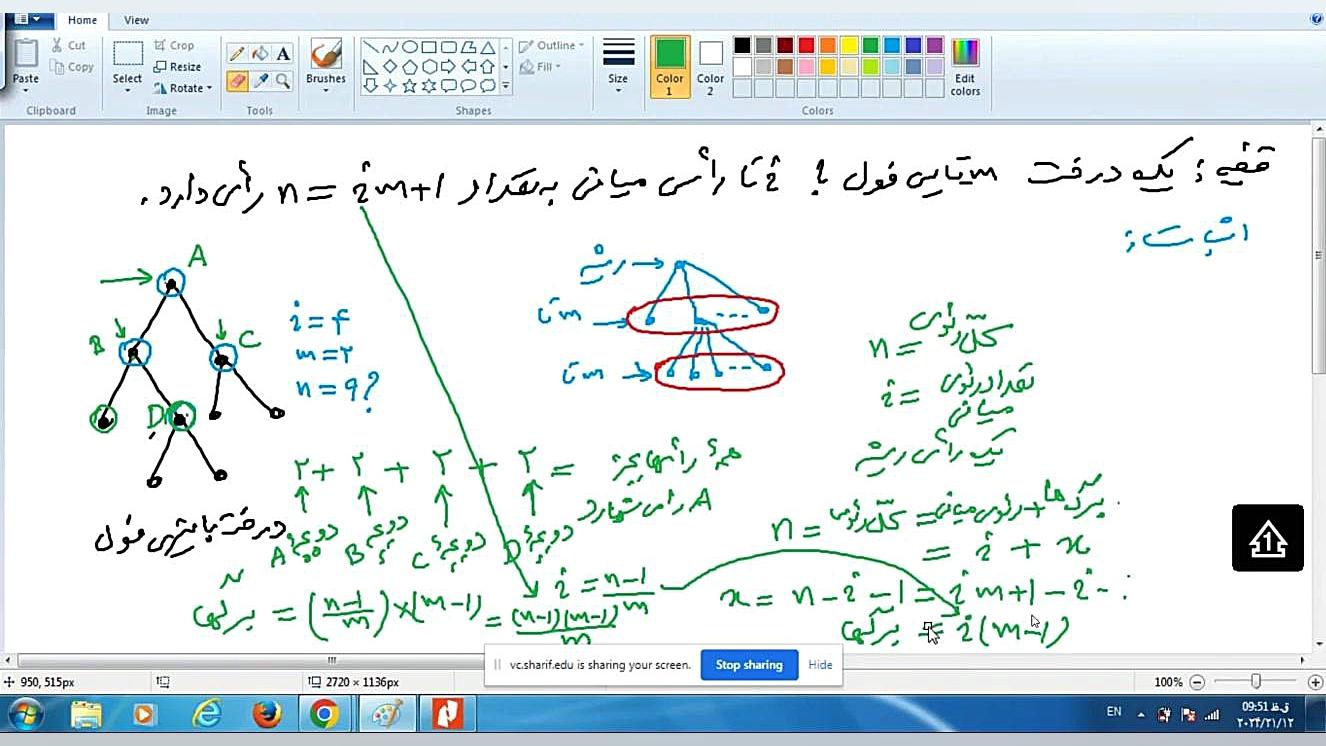 Home View
Paste
Cut
Copy
Clipboard
Select
Crop
Resize
Rotate
Image
A
Tools
Brushes
Outline
Fill
Shapes
Size
Color 1
Color 2
Edit colors
Colors
قضیه: یک درخت m تایی فول با i تا رأس میانی به تعداد n = im+1 رأس دارد.
اثبات:
A
B
C
D
i = ۴
m = ۲
n = ۹?
ریشه
m تا
m تا
n = کل رئوس
i = تعداد رئوس میانی
یک رأس ریشه
۲ + ۲ + ۲ + ۲ = همهٔ رأسها بجز
A را می‌شمارد
دو بچهٔ A
دو بچهٔ B
دو بچهٔ C
دو بچهٔ D
درخت باینری فول
n = کل رئوس = رئوس میانی + برگ‌ها
= i + x
i = n-1/m
x = n - i - 1 = im+1 - i -
برگها = (n-1/m) × (m-1) = (n-1)(m-1)/m
برگها = i(m-1)
1
vc.sharif.edu is sharing your screen. Stop sharing Hide
950, 515px
2720 × 1136px
100%
EN
09:51 ق.ظ
۲۰۲۴/۲۱/۱۲